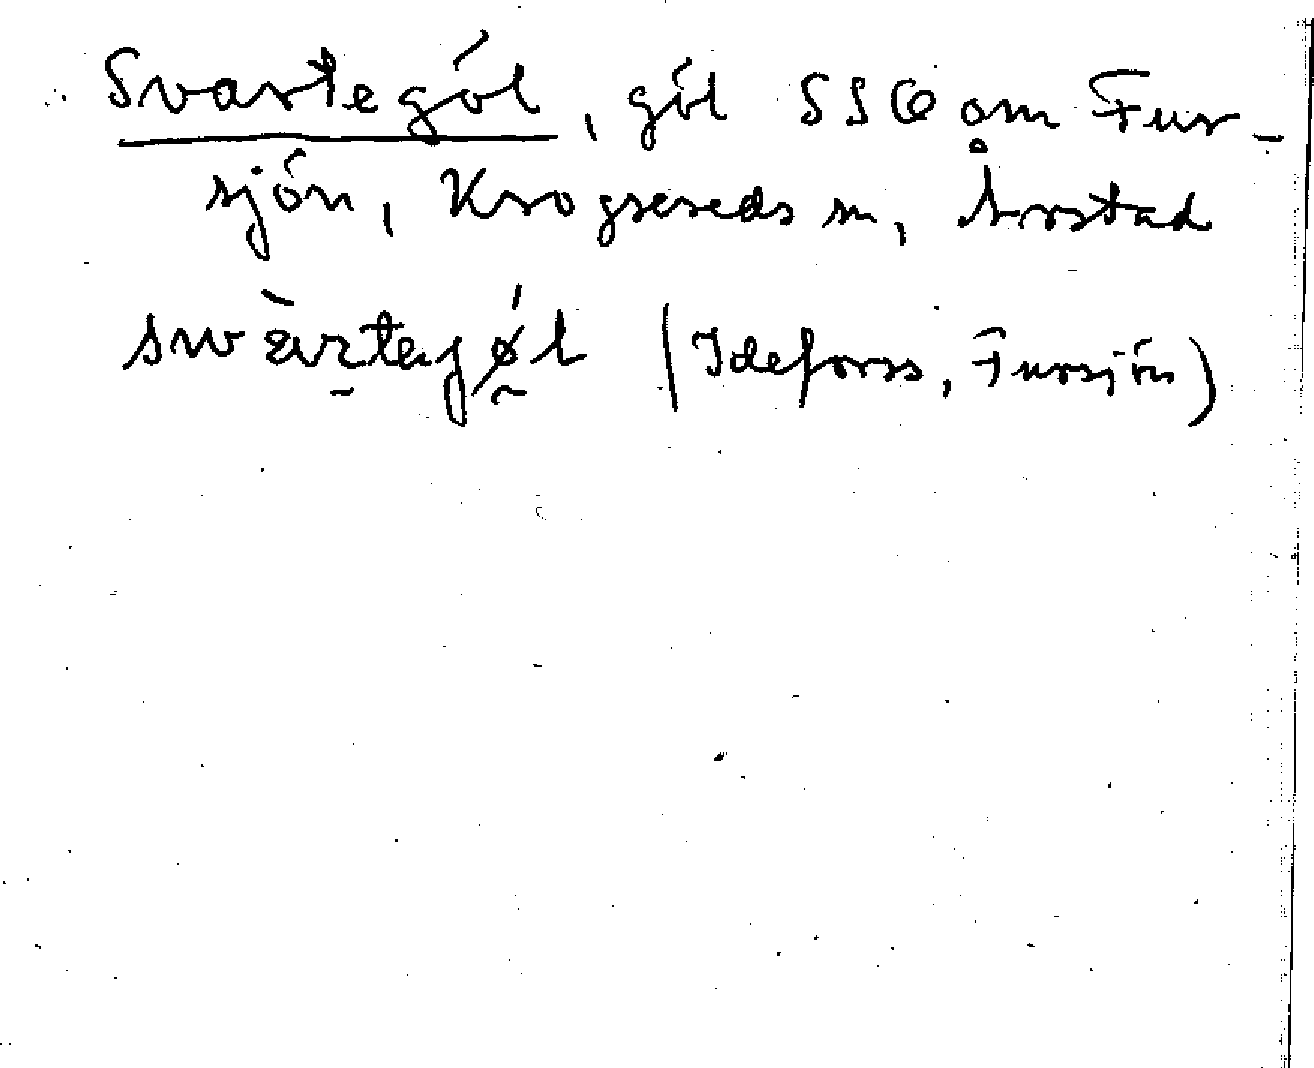 Svartegöl, göl SSO om Fur-
sjön, Krogsereds sn, Årstad
(Idefors, Fursjön)